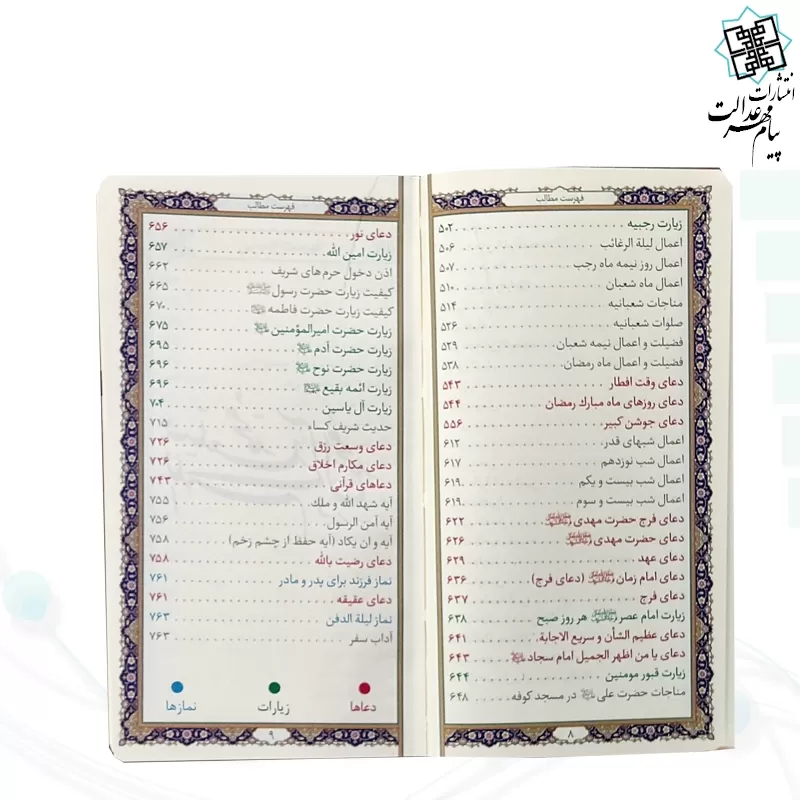 انتشارات
پیام مهر عدالت
فهرست مطالب
زیارت رجبیه ۵۰۲
اعمال لیلة الرغائب ۵۰۶
اعمال روز نیمه ماه رجب ۵۰۷
اعمال ماه شعبان ۵۱۰
مناجات شعبانیه ۵۱۴
صلوات شعبانیه ۵۲۶
فضیلت و اعمال نیمه شعبان ۵۲۹
فضیلت و اعمال ماه رمضان ۵۳۸
دعای وقت افطار ۵۴۳
دعای روزهای ماه مبارک رمضان ۵۴۴
دعای جوشن کبیر ۵۵۶
اعمال شبهای قدر ۶۱۲
اعمال شب نوزدهم ۶۱۷
اعمال شب بیست و یکم ۶۱۹
اعمال شب بیست و سوم ۶۱۹
دعای فرج حضرت مهدی ۶۲۲
دعای حضرت مهدی ۶۲۶
دعای عهد ۶۲۹
دعای امام زمان (دعای فرج) ۶۳۶
دعای فرج ۶۳۷
زیارت امام عصر هر روز صبح ۶۳۸
دعای عظیم الشأن و سریع الاجابة ۶۴۱
دعای یا من اظهر الجمیل امام سجاد ۶۴۳
زیارت قبور مومنین ۶۴۴
مناجات حضرت علی در مسجد کوفه ۶۴۸
۸
فهرست مطالب
دعای نور ۶۵۶
زیارت امین الله ۶۵۷
اذن دخول حرم های شریف ۶۶۲
کیفیت زیارت حضرت رسول ۶۶۵
کیفیت زیارت حضرت فاطمه ۶۷۰
زیارت حضرت امیرالمؤمنین ۶۷۵
زیارت حضرت آدم ۶۹۵
زیارت حضرت نوح ۶۹۶
زیارت ائمه بقیع ۶۹۶
زیارت آل یاسین ۷۰۴
حدیث شریف کساء ۷۱۵
دعای وسعت رزق ۷۲۶
دعای مکارم اخلاق ۷۲۶
دعاهای قرآنی ۷۴۳
آیه شهد الله و ملک ۷۵۵
آیه آمن الرسول ۷۵۶
آیه و ان یکاد (آیه حفظ از چشم زخم) ۷۵۸
دعای رضیت بالله ۷۵۸
نماز فرزند برای پدر و مادر ۷۶۱
دعای عقیقه ۷۶۱
نماز لیلة الدفن ۷۶۳
آداب سفر ۷۶۳
دعاها زیارات نمازها
۹